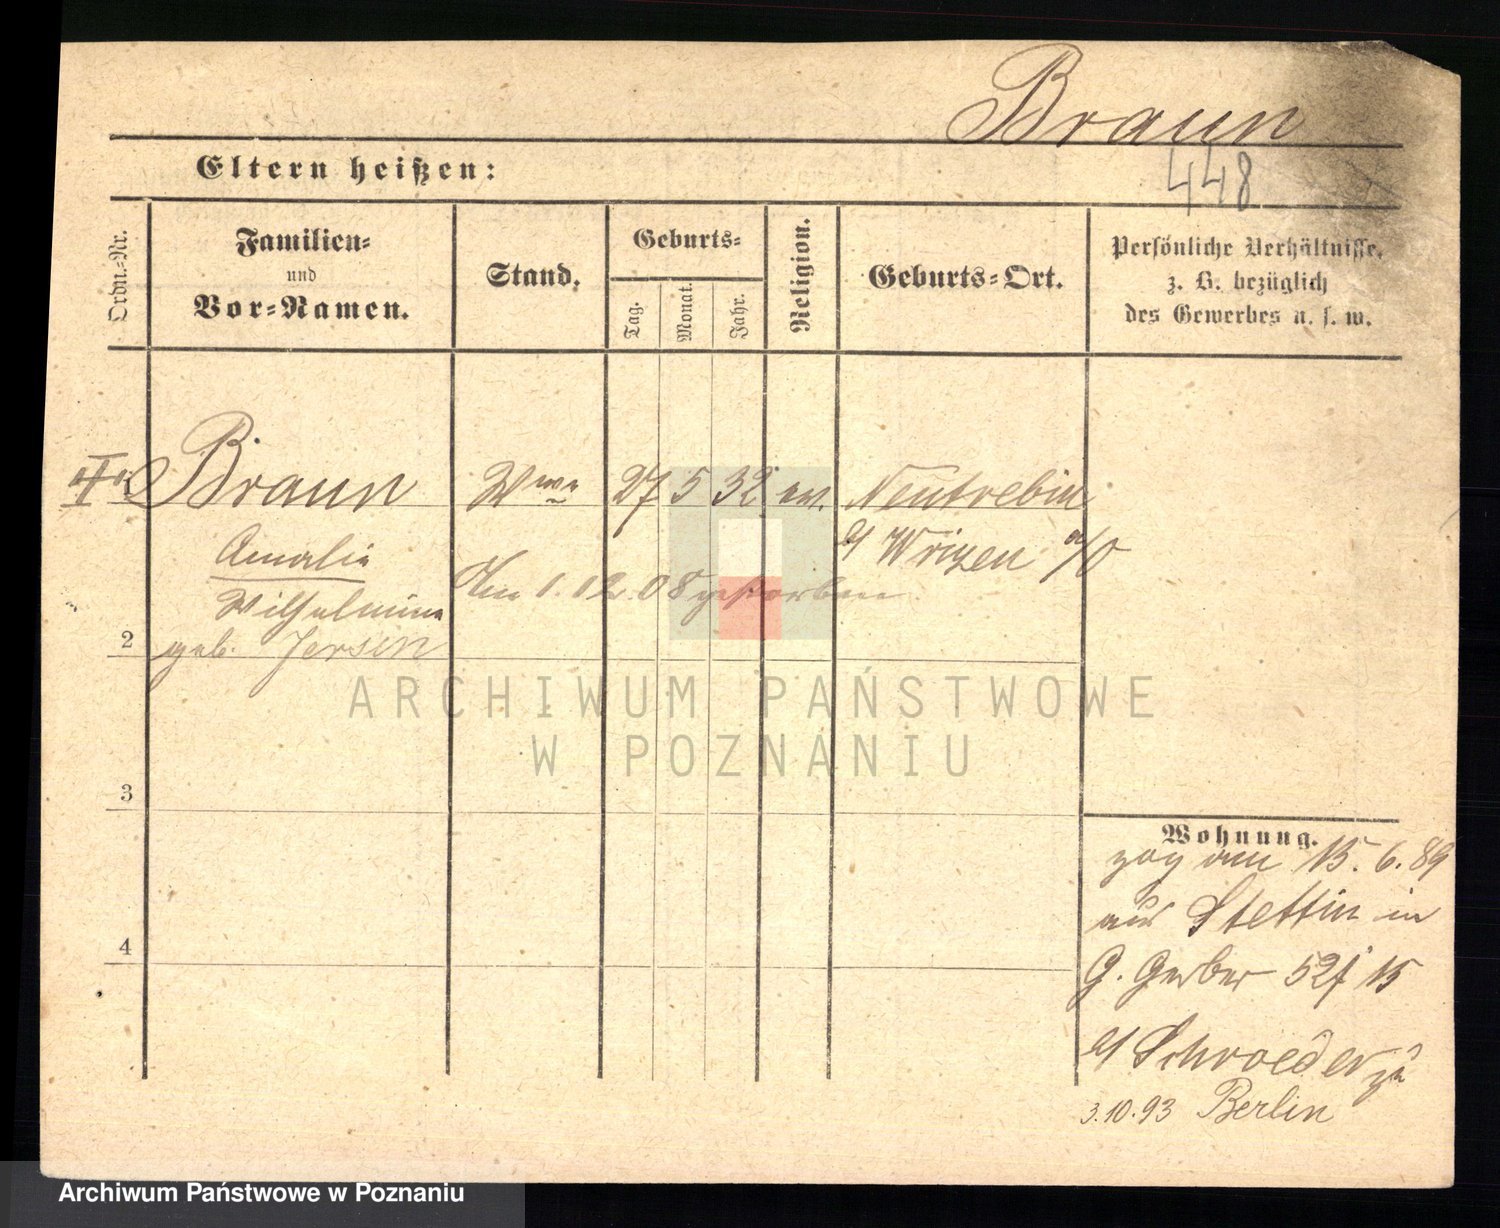 Braun
Eltern heißen:
448
Ordn.-Nr.
Familien-
und
Vor-Namen.
Stand.
Geburts-
Tag.
Monat.
Jahr.
Religion.
Geburts-Ort.
Persönliche Verhältnisse,
z. B. bezüglich
des Gewerbes u. s. w.
Braun Wwe 27 5 32 ev. Neutrebin
b/ Wrizen a/O
Amalie
Am 1.12.08 gestorben
Wilhelmine
2
geb. Jersen
ARCHIWUM PAŃSTWOWE
W POZNANIU
3
4
Wohnung.
zog am 15.6.89
aus Stettin in
G. Gerber 52 / 15
b/ Schroeder
3.10.93 Berlin
Archiwum Państwowe w Poznaniu